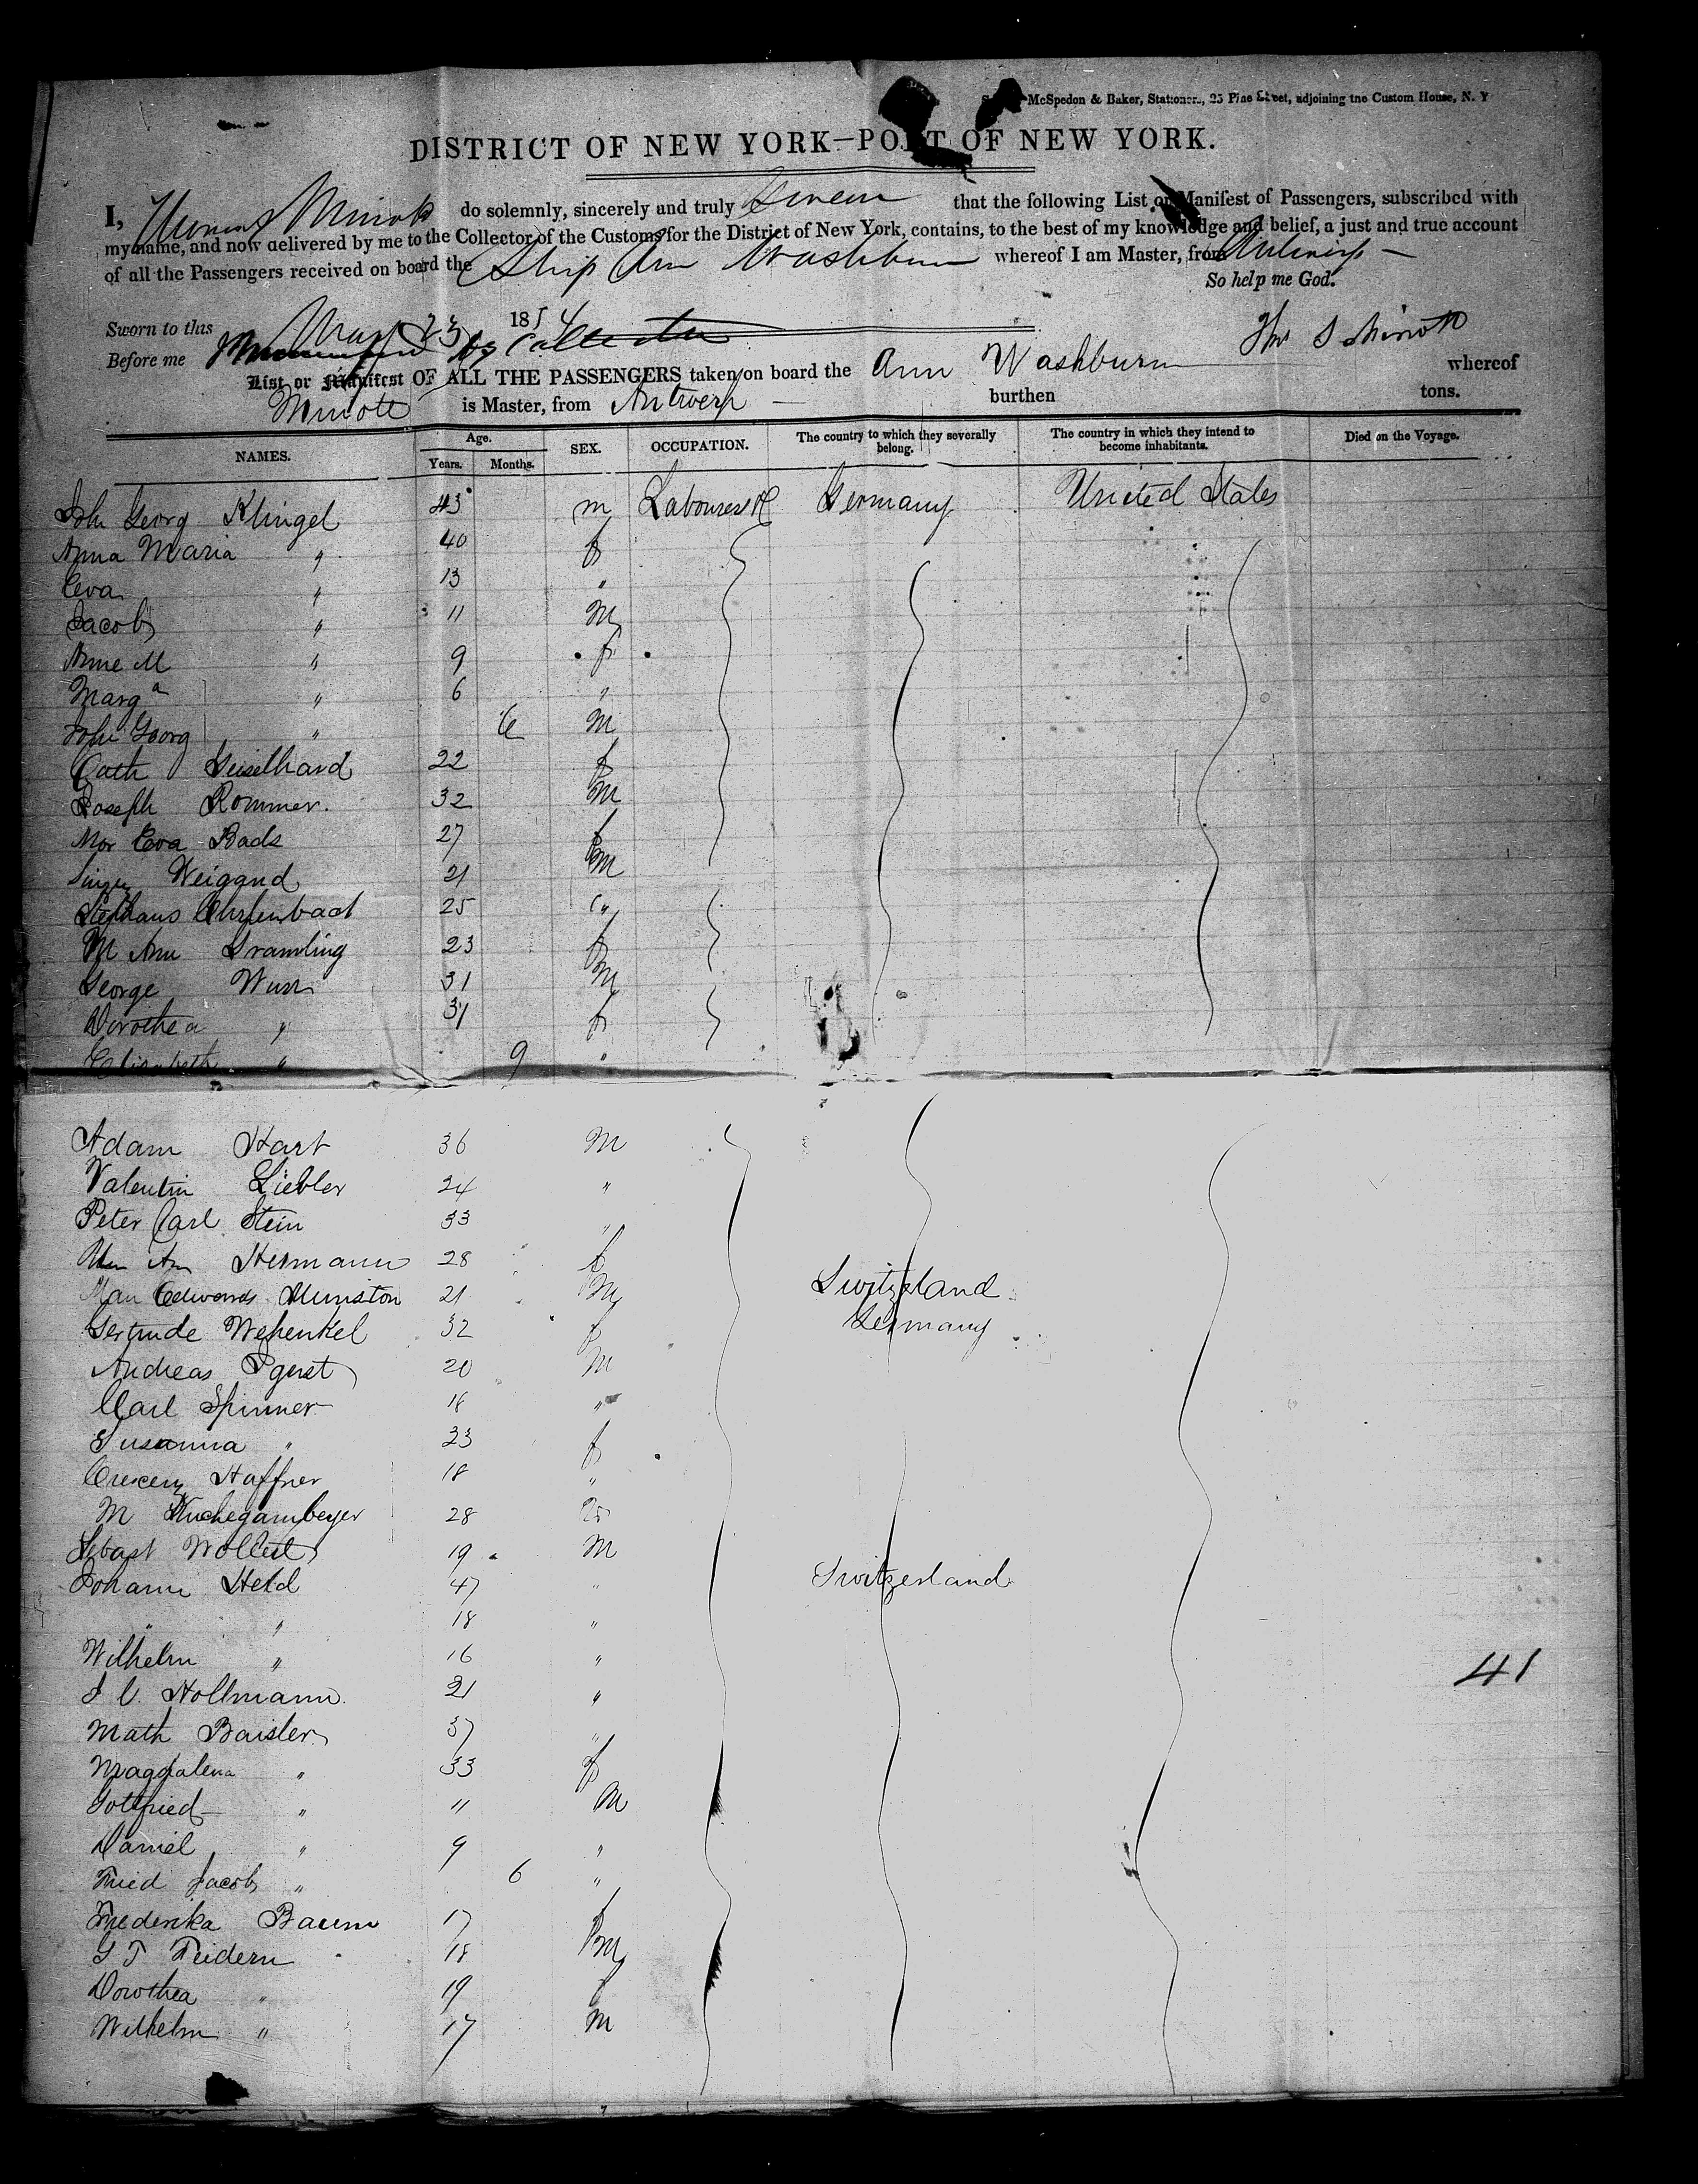 McSpedon & Baker, Stationers, 25 Pine Street, adjoining the Custom House, N. Y
DISTRICT OF NEW YORK—PORT OF NEW YORK.
I, Thomas Minott do solemnly, sincerely and truly Swear that the following List or Manifest of Passengers, subscribed with
my name, and now delivered by me to the Collector of the Customs for the District of New York, contains, to the best of my knowledge and belief, a just and true account
of all the Passengers received on board the Ship Ann Washburn whereof I am Master, from Antwerp
So help me God.
Sworn to this May 23 1854
Before me Thos S Minott
List or Manifest OF ALL THE PASSENGERS taken on board the Ann Washburn whereof
Minott is Master, from Antwerp burthen tons.
NAMES. Age. Years. Months. SEX. OCCUPATION. The country to which they severally belong. The country in which they intend to become inhabitants. Died on the Voyage.
John Georg Klingel 43 m Labourer Germany United States
Anna Maria " 40 f
Eva " 13 "
Jacob " 11 M
Anne M " 9 f
Marga " 6 "
John Georg " 6 M
Cath Geiselhard 22 f
Joseph Rommer. 32 M
Eva Bads 27 f
Weigand 21 M
Stephans 25 "
M Ann Gramling 23 f
George 31 M
Dorothea " 31 f
Elizabeth " 9 "
Adam Hart 36 M
Valentin Liebler 24 "
Peter Carl Stein 33 "
Hermann 28 f
Edwards 21 M Switzerland
Gertrude Wehenkel 32 f Germany
Andreas 20 M
Carl Spinner 18 "
Susanna " 23 f
Crescenz Haffner 18 "
M 28
Sebast 19 M
Johann Held 47 " Switzerland
" " 18 "
Wilhelm " 16 "
Hollmann. 21 "
Math Baisler 37 "
Magdalena " 33 f
Gottfried " 11 M
Daniel " 9 "
Fried Jacob " 6 "
Frederika Baum 17 f
G T Feidern 18 M
Dorothea " 19 f
Wilhelm " 17 M
41